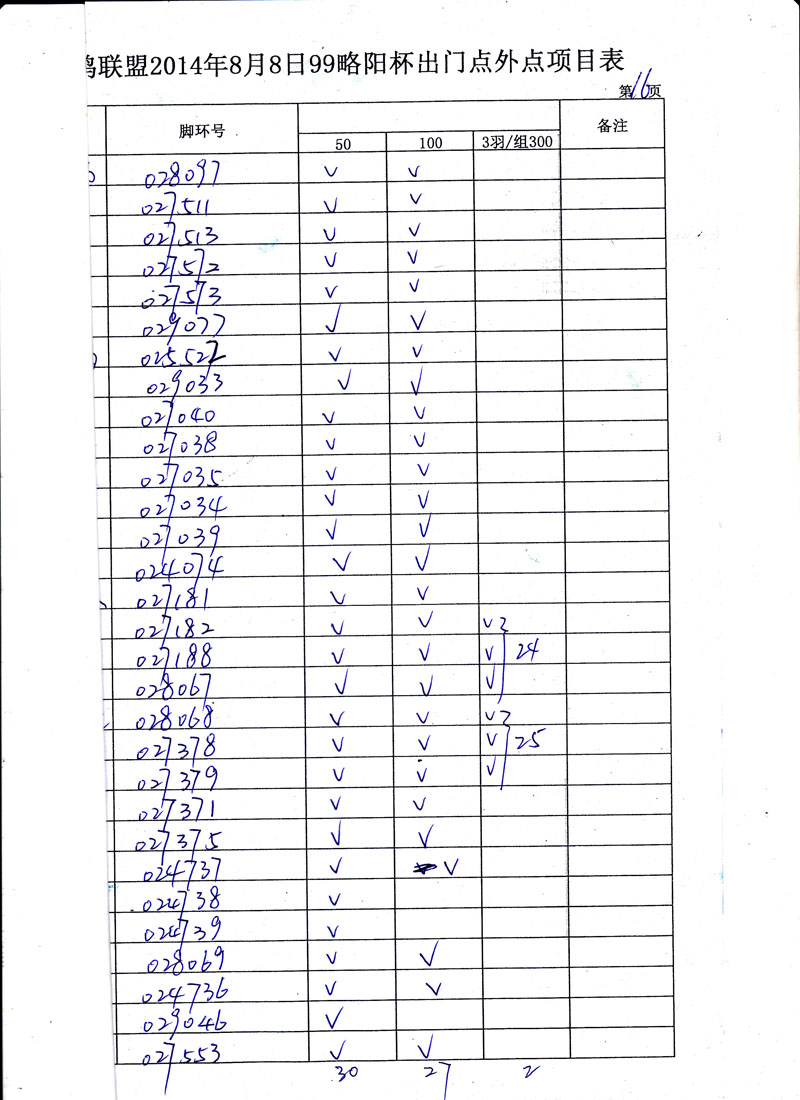 鸽联盟2014年8月8日99略阳杯出门点外点项目表
第16页
脚环号 50 100 3羽/组300 备注
028097 √ √
027511 √ √
027513 √ √
027572 √ √
027573 √ √
029077 √ √
025522 √ √
029033 √ √
027040 √ √
027038 √ √
027035 √ √
027034 √ √
027039 √ √
024074 √ √
027181 √ √
027182 √ √ √
027188 √ √ √ 24
028067 √ √ √
028068 √ √ √
027378 √ √ √ 25
027379 √ √ √
027371 √ √
027375 √ √
024737 √ √
024738 √
024739 √
028069 √ √
024736 √ √
029046 √
027553 √ √
30 27 2